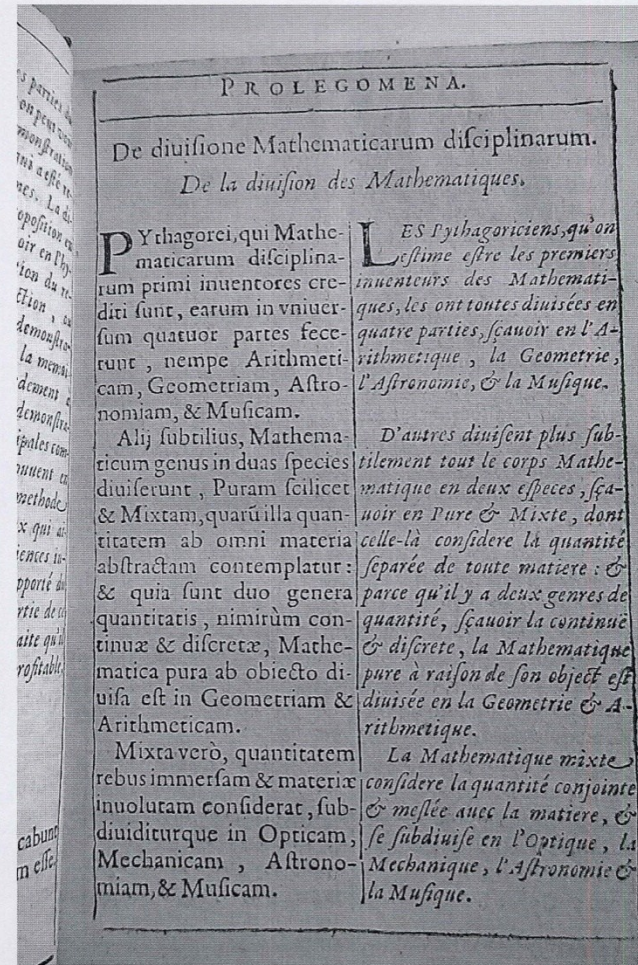 es parties du
on peut voir
monstration
qui a esté re-
nes. La di-
oposition en
oir en Phy-
ion du re-
ction, ou
demonstra-
la memoi-
dement a
demonstra-
ipales com-
nuent en
methode
x qui ai-
iences in-
pporté du
rtie de ce
aite qu'il
rofitable.
cabunt
m esse.
PROLEGOMENA.
De diuiſione Mathematicarum diſciplinarum.
De la diuiſion des Mathematiques.
PYthagorei, qui Mathe-
maticarum diſciplina-
rum primi inuentores cre-
diti ſunt, earum in vniuer-
ſum quatuor partes fece-
runt, nempe Arithmeti-
cam, Geometriam, Aſtro-
nomiam, & Muſicam.
Alij ſubtilius, Mathema-
ticum genus in duas ſpecies
diuiſerunt, Puram ſcilicet
& Mixtam, quarū illa quan-
titatem ab omni materia
abſtractam contemplatur:
& quia ſunt duo genera
quantitatis, nimirùm con-
tinuæ & diſcretæ, Mathe-
matica pura ab obiecto di-
uiſa eſt in Geometriam &
Arithmeticam.
Mixta verò, quantitatem
rebus immerſam & materiæ
inuolutam conſiderat, ſub-
diuiditurque in Opticam,
Mechanicam, Aſtrono-
miam, & Muſicam.
LES Pythagoriciens, qu'on
eſtime eſtre les premiers
inuenteurs des Mathemati-
ques, les ont toutes diuisées en
quatre parties, ſçauoir en l'A-
rithmetique, la Geometrie,
l'Aſtronomie, & la Muſique.
D'autres diuiſent plus ſub-
tilement tout le corps Mathe-
matique en deux eſpeces, ſça-
uoir en Pure & Mixte, dont
celle-là conſidere la quantité
ſeparée de toute matiere: &
parce qu'il y a deux genres de
quantité, ſçauoir la continuë
& diſcrete, la Mathematique
pure à raiſon de ſon object eſt
diuisée en la Geometrie & A-
rithmetique.
La Mathematique mixte
conſidere la quantité conjointe
& meſlée auec la matiere, &
ſe ſubdiuiſe en l'Optique, la
Mechanique, l'Aſtronomie &
la Muſique.